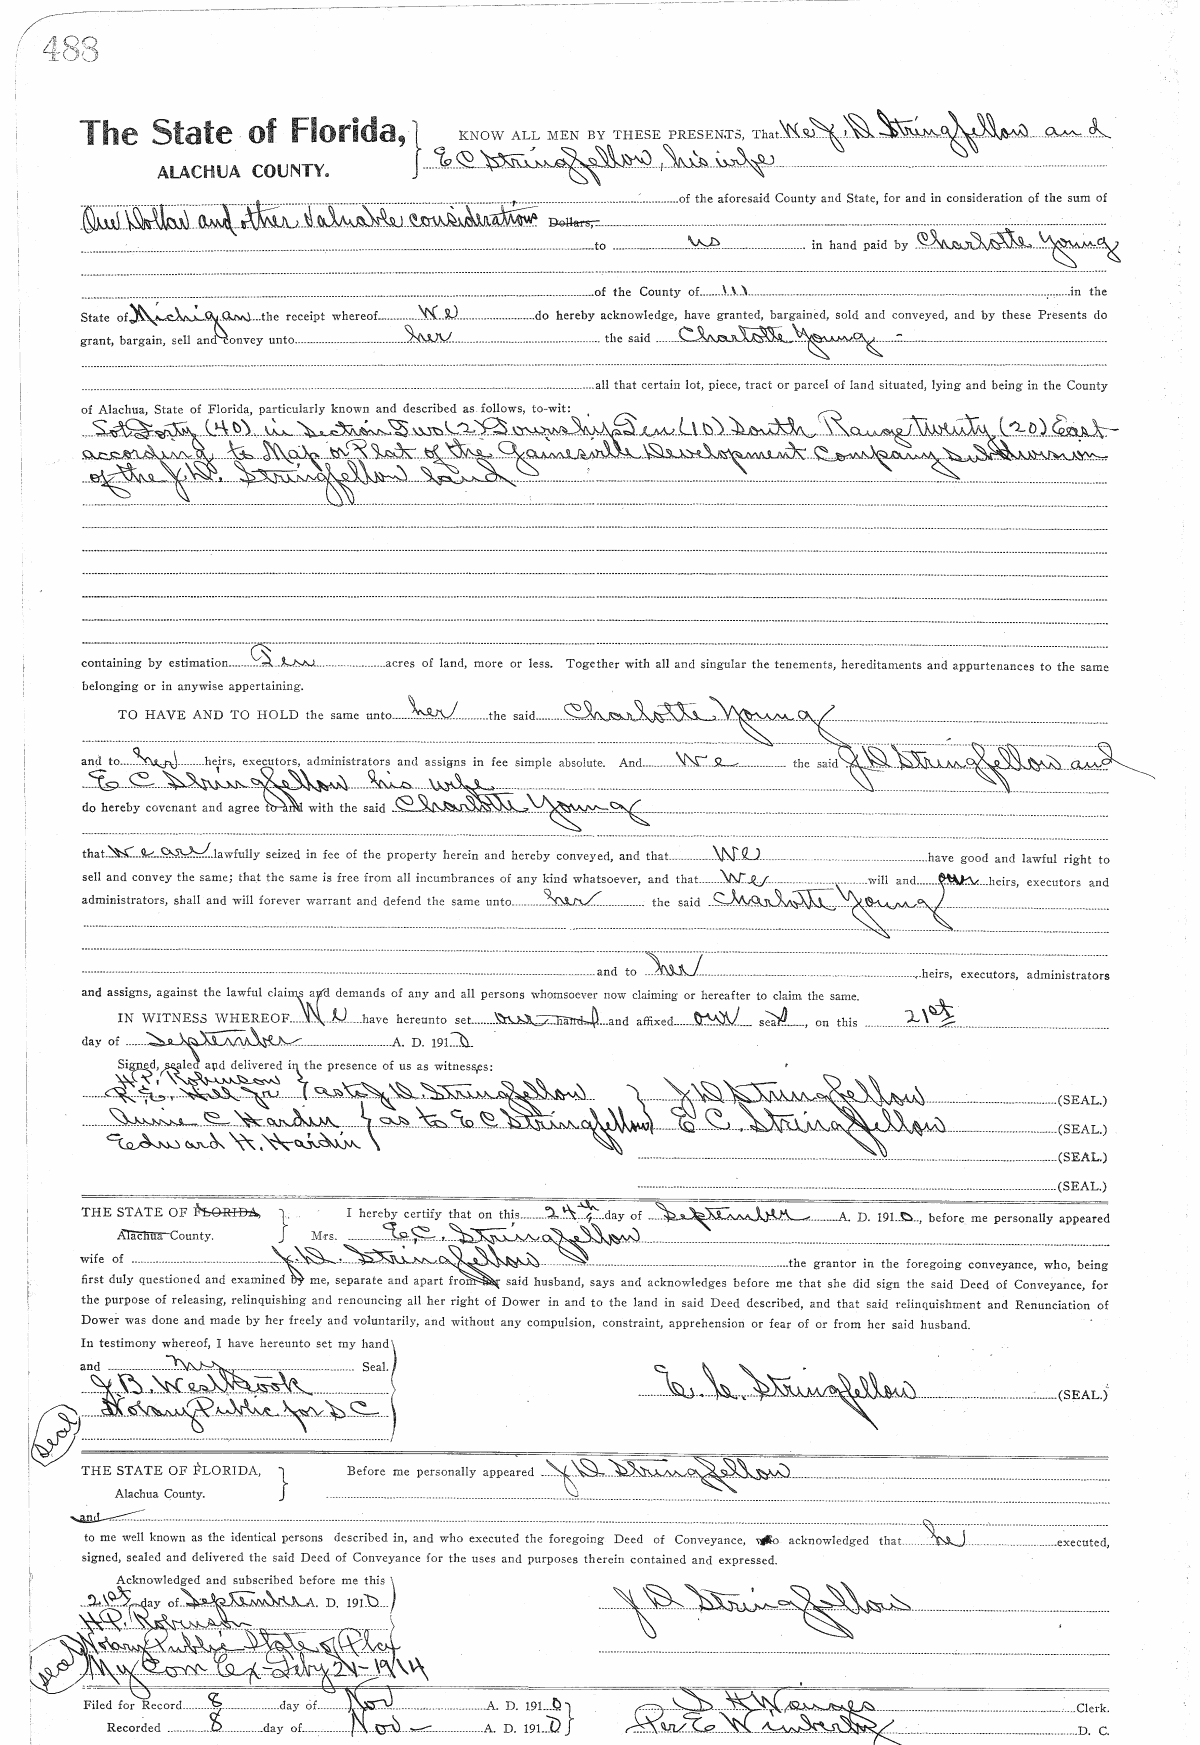 488
The State of Florida, KNOW ALL MEN BY THESE PRESENTS, That We J. D Stringfellow and
ALACHUA COUNTY. E C Stringfellow, his wife
of the aforesaid County and State, for and in consideration of the sum of
One Dollar and other valuable considerations Dollars,
to us in hand paid by Charlotte Young
of the County of in the
State of Michigan the receipt whereof We do hereby acknowledge, have granted, bargained, sold and conveyed, and by these Presents do
grant, bargain, sell and convey unto her the said Charlotte Young -
all that certain lot, piece, tract or parcel of land situated, lying and being in the County
of Alachua, State of Florida, particularly known and described as follows, to-wit:
Lot Forty (40) in Section Two (2) Township Ten (10) South Range twenty (20) East
according to Map or Plat of the Gainesville Development Company subdivision
of the J.D. Stringfellow land
containing by estimation Ten acres of land, more or less. Together with all and singular the tenements, hereditaments and appurtenances to the same
belonging or in anywise appertaining.
TO HAVE AND TO HOLD the same unto her the said Charlotte Young
and to her heirs, executors, administrators and assigns in fee simple absolute. And We the said J D Stringfellow and
E C Stringfellow his wife
do hereby covenant and agree to and with the said Charlotte Young
that we are lawfully seized in fee of the property herein and hereby conveyed, and that We have good and lawful right to
sell and convey the same; that the same is free from all incumbrances of any kind whatsoever, and that We will and our heirs, executors and
administrators, shall and will forever warrant and defend the same unto her the said Charlotte Young
and to her heirs, executors, administrators
and assigns, against the lawful claims and demands of any and all persons whomsoever now claiming or hereafter to claim the same.
IN WITNESS WHEREOF We have hereunto set our hand and affixed our seal, on this 21st
day of September A. D. 1910
Signed, sealed and delivered in the presence of us as witnesses:
H.P. Robinson
R. E. Hill Jr as to J. D. Stringfellow J D Stringfellow (SEAL.)
Annie C Hardin as to E C Stringfellow E C. Stringfellow (SEAL.)
Edward H. Hardin (SEAL.)
(SEAL.)
THE STATE OF FLORIDA, I hereby certify that on this 24th day of September A. D. 1910, before me personally appeared
Alachua County. Mrs. E.C. Stringfellow
wife of J.D. Stringfellow the grantor in the foregoing conveyance, who, being
first duly questioned and examined by me, separate and apart from her said husband, says and acknowledges before me that she did sign the said Deed of Conveyance, for
the purpose of releasing, relinquishing and renouncing all her right of Dower in and to the land in said Deed described, and that said relinquishment and Renunciation of
Dower was done and made by her freely and voluntarily, and without any compulsion, constraint, apprehension or fear of or from her said husband.
In testimony whereof, I have hereunto set my hand
and my Seal.
J.B. Westbrook E. C. Stringfellow (SEAL.)
Notary Public for S C
seal
THE STATE OF FLORIDA, Before me personally appeared J D Stringfellow
Alachua County.
and
to me well known as the identical persons described in, and who executed the foregoing Deed of Conveyance, who acknowledged that he executed,
signed, sealed and delivered the said Deed of Conveyance for the uses and purposes therein contained and expressed.
Acknowledged and subscribed before me this
21st day of September A. D. 1910 J D Stringfellow
H.P. Robinson
Notary Public State of Fla
seal My Com Ex-Feby 21-1914
Filed for Record 8 day of Nov A. D. 1910 S H Wienges Clerk.
Recorded 8 day of Nov - A. D. 1910 Per E Wimberly D. C.